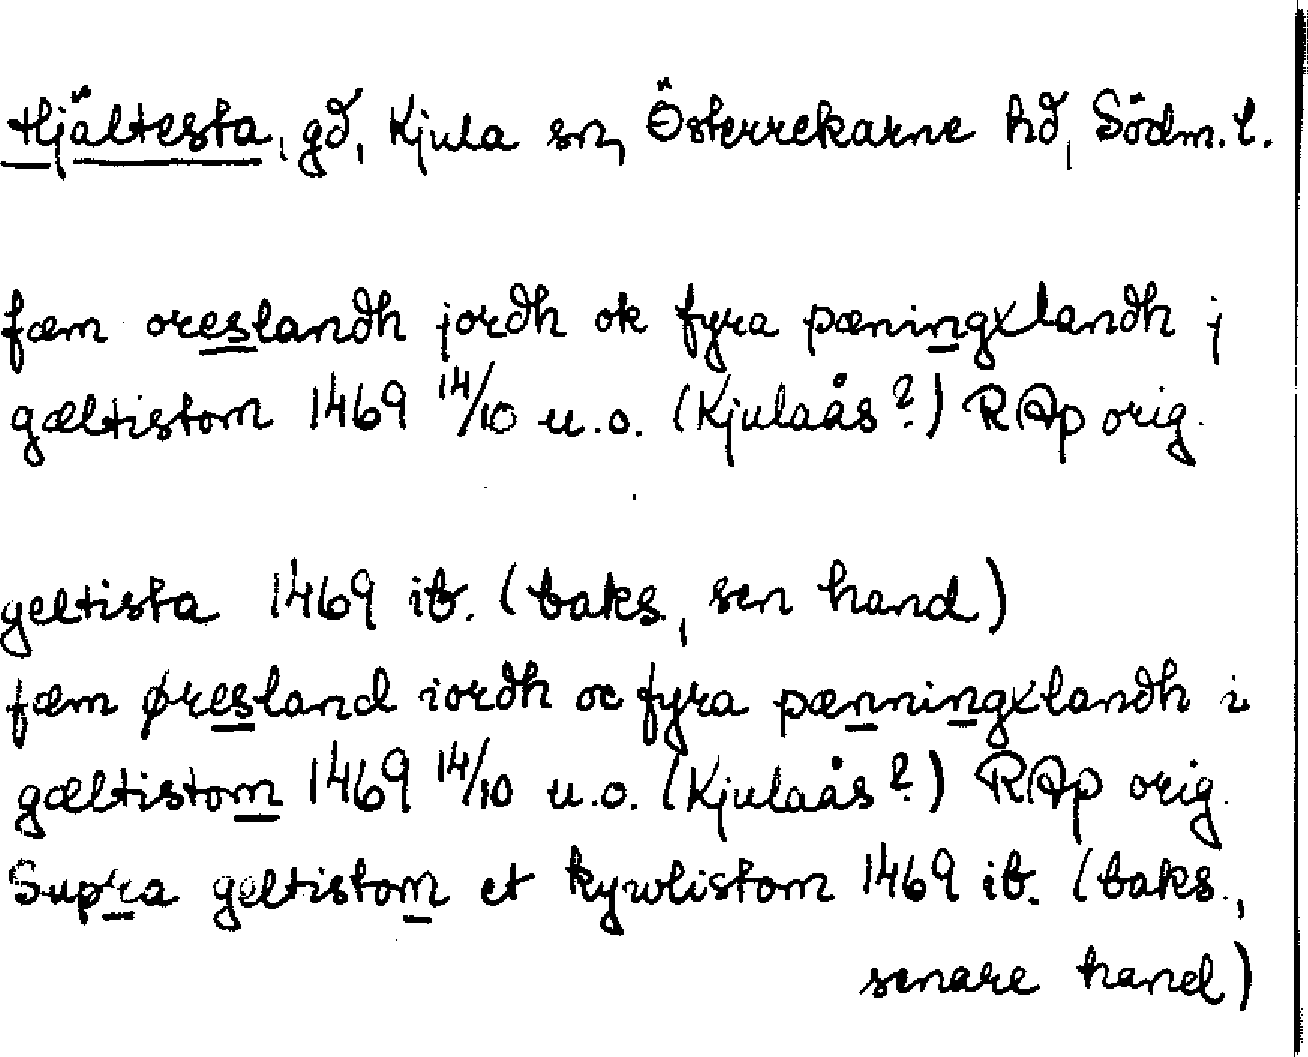 Hjältesta, gd, Kjula sn, Österrekarne hd, Södm. l.
fæm oreslandh jordh ok fyra pæningxlandh j
gæltistom 1469 14/10 u.o. (Kjulaås?) RAp orig.
geltista 1469 ib. (baks, sen hand)
fæm øresland iordh oc fyra pænningxlandh i
gæltistom 1469 14/10 u.o. (Kjulaås?) RAp orig.
Supra geltistom et kywlistom 1469 ib. (baks.,
senare hand)